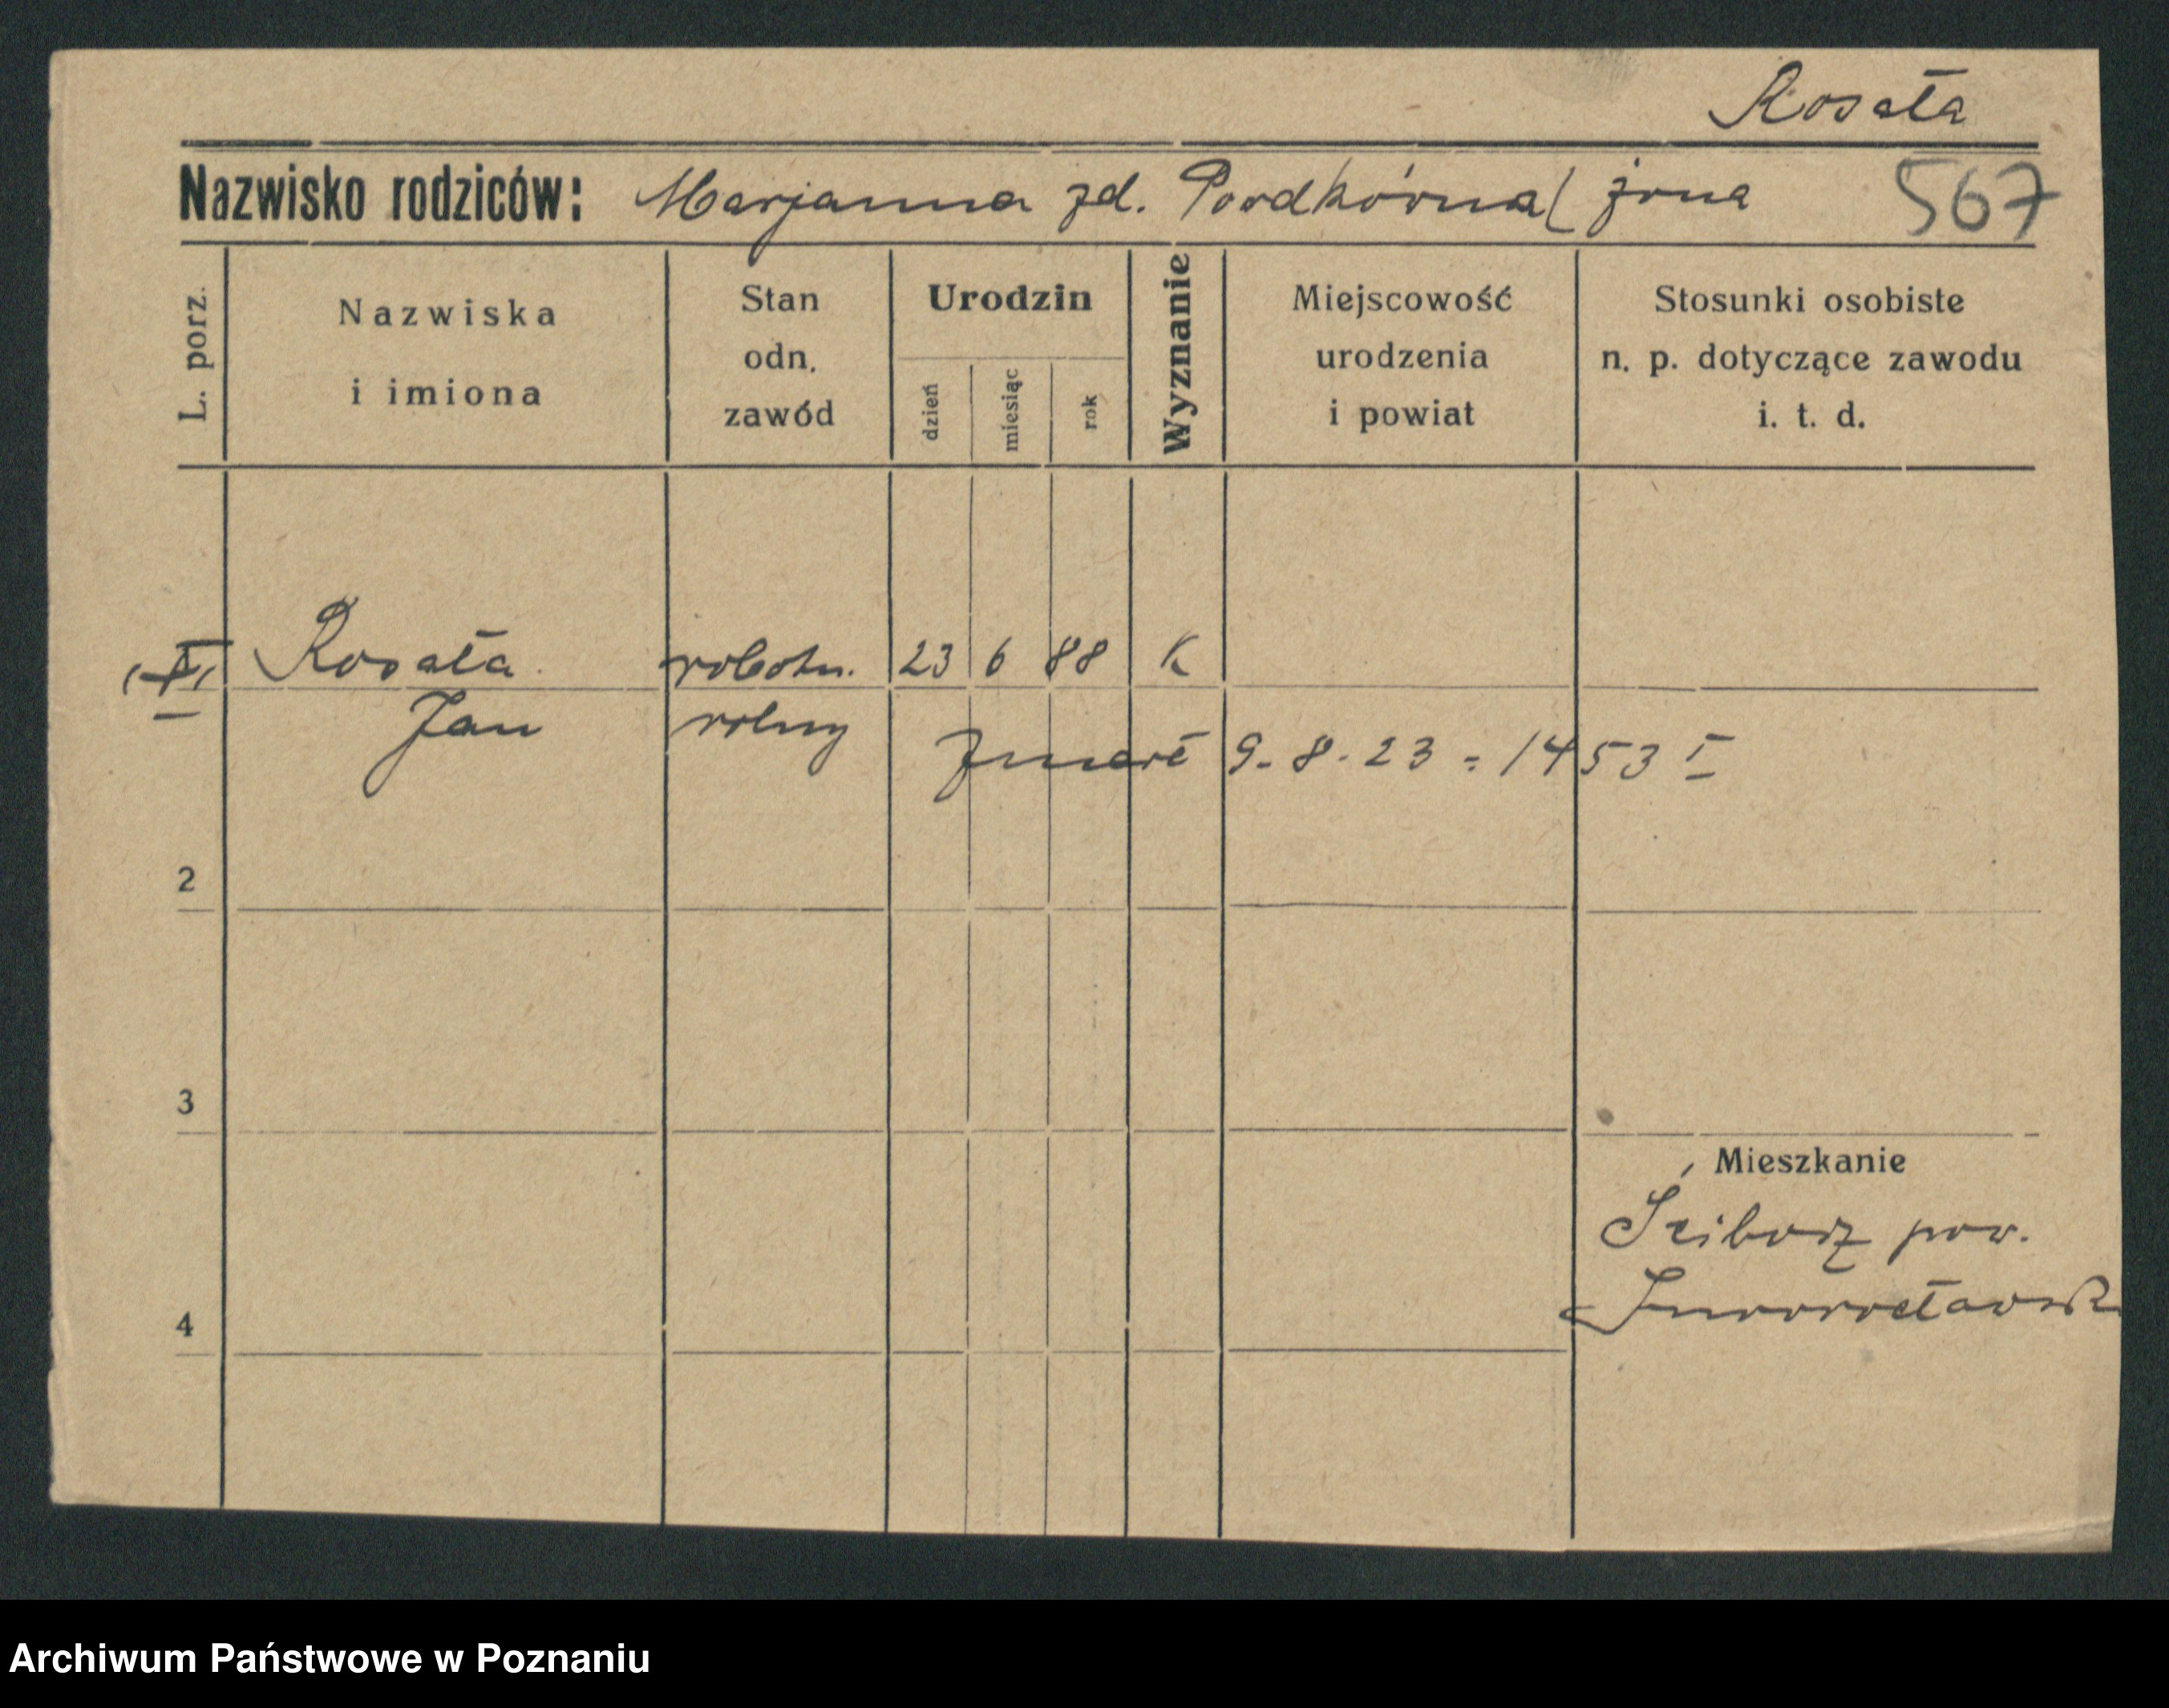 Rosała
Nazwisko rodziców: Marjanna zd. Podkówna( żona 567
L. porz. Nazwiska i imiona Stan odn. zawód Urodzin dzień miesiąc rok Wyznanie Miejscowość urodzenia i powiat Stosunki osobiste n. p. dotyczące zawodu i. t. d.
Rosała robotn. 23 6 88 K
Jan rolny zmarł 9. 8. 23 = 1453 I
2
3
Mieszkanie
Ściborz pow.
4 Inowrocławsk
Archiwum Państwowe w Poznaniu